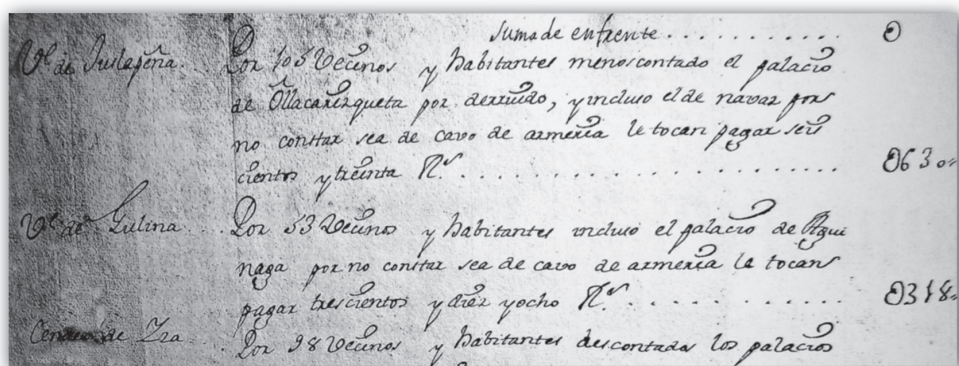 Suma de enfrente . . . . . . . . . . . .
Vᵉ de Juslapeña. Por 105 Vecinos y habitantes menoscontado el palacio
de Ollacarizqueta por derruido, y incluso el de navaz por
no constar sea de cavo de armeria le tocan pagar seis
cientos y treinta Rˢ. . . . . . . . . . . . . . . . . . 0630„
Vᵉ de Gulina . . . Por 53 Vecinos y habitantes incluso el palacio de Agui
naga por no constar sea de cavo de armeria le tocan
pagar trescientos y diez yocho Rˢ. . . . . . . . . . 0318„
Cendea de Iza . . Por 98 Vecinos y habitantes descontados los palacios